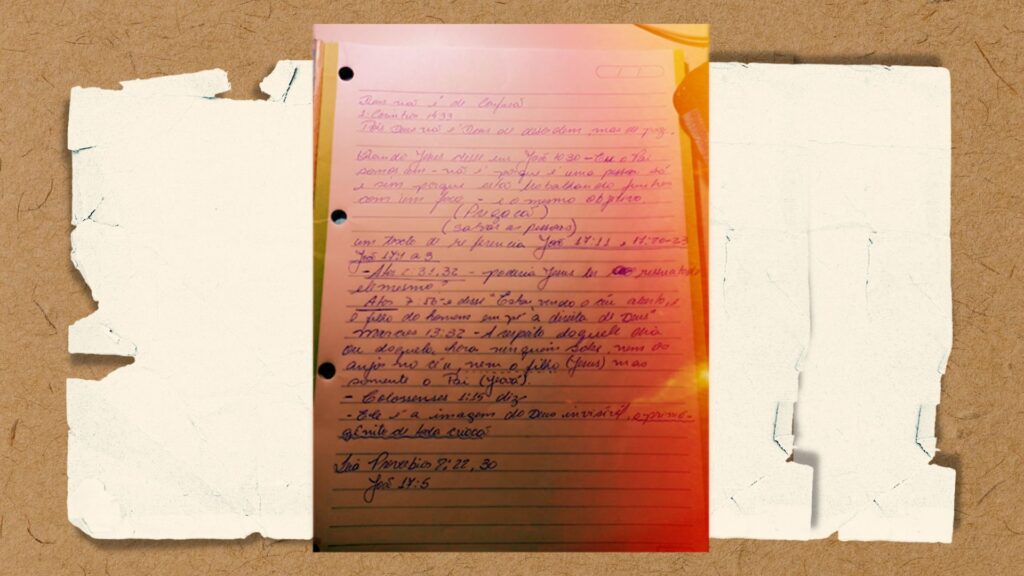 Deus não é de Confusã
1 Corintios 14:33
Pois Deus não é Deus de desordem, mas de paz.
Quando Jesus disse em João 10:30 - Eu e o Pai
somos um - não é porque é uma pessoa só
e sim porque está trabalhando juntos
com um foco - e o mesmo objetivo.
(Pregacã)
(salvar as pessoas)
um texto de referencia João 17:11 e 17:20-23
João 17:1 a 3
- Atos 2:31,32 - poderia Jesus ter ressucitado
ele mesmo?
Atos 7:56 e disse "Estou vendo o céu aberto, e
o filho do homem em pé a direita de Deus"
Marcos 13:32 - A respeito daquele dia
ou daquela hora ninguém sabe, nem os
anjos no céu, nem o filho (Jesus) mas
somente o Pai (Jeová).
- Colossenses 1:15 diz
- Ele é a imagem do Deus invisível, o primo-
gênito de toda criacã
Proverbios 8:22,30
João 17:5